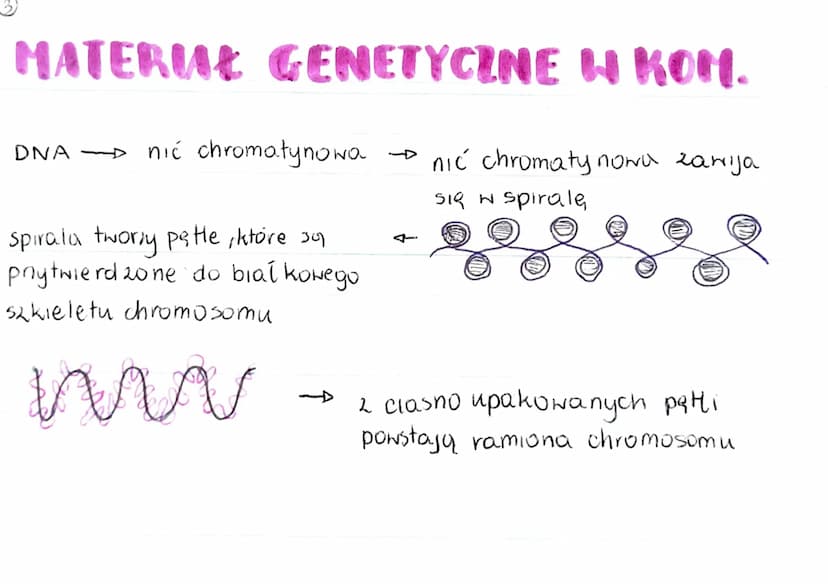 3
MATERIAŁ GENETYCZNE W KOM.
DNA → nić chromatynowa → nić chromatynowa zawija
się w spiralę
spirala tworzy pętle, które są ←
przytwierdzone do białkowego
szkieletu chromosomu
→ z ciasno upakowanych pętli
powstają ramiona chromosomu